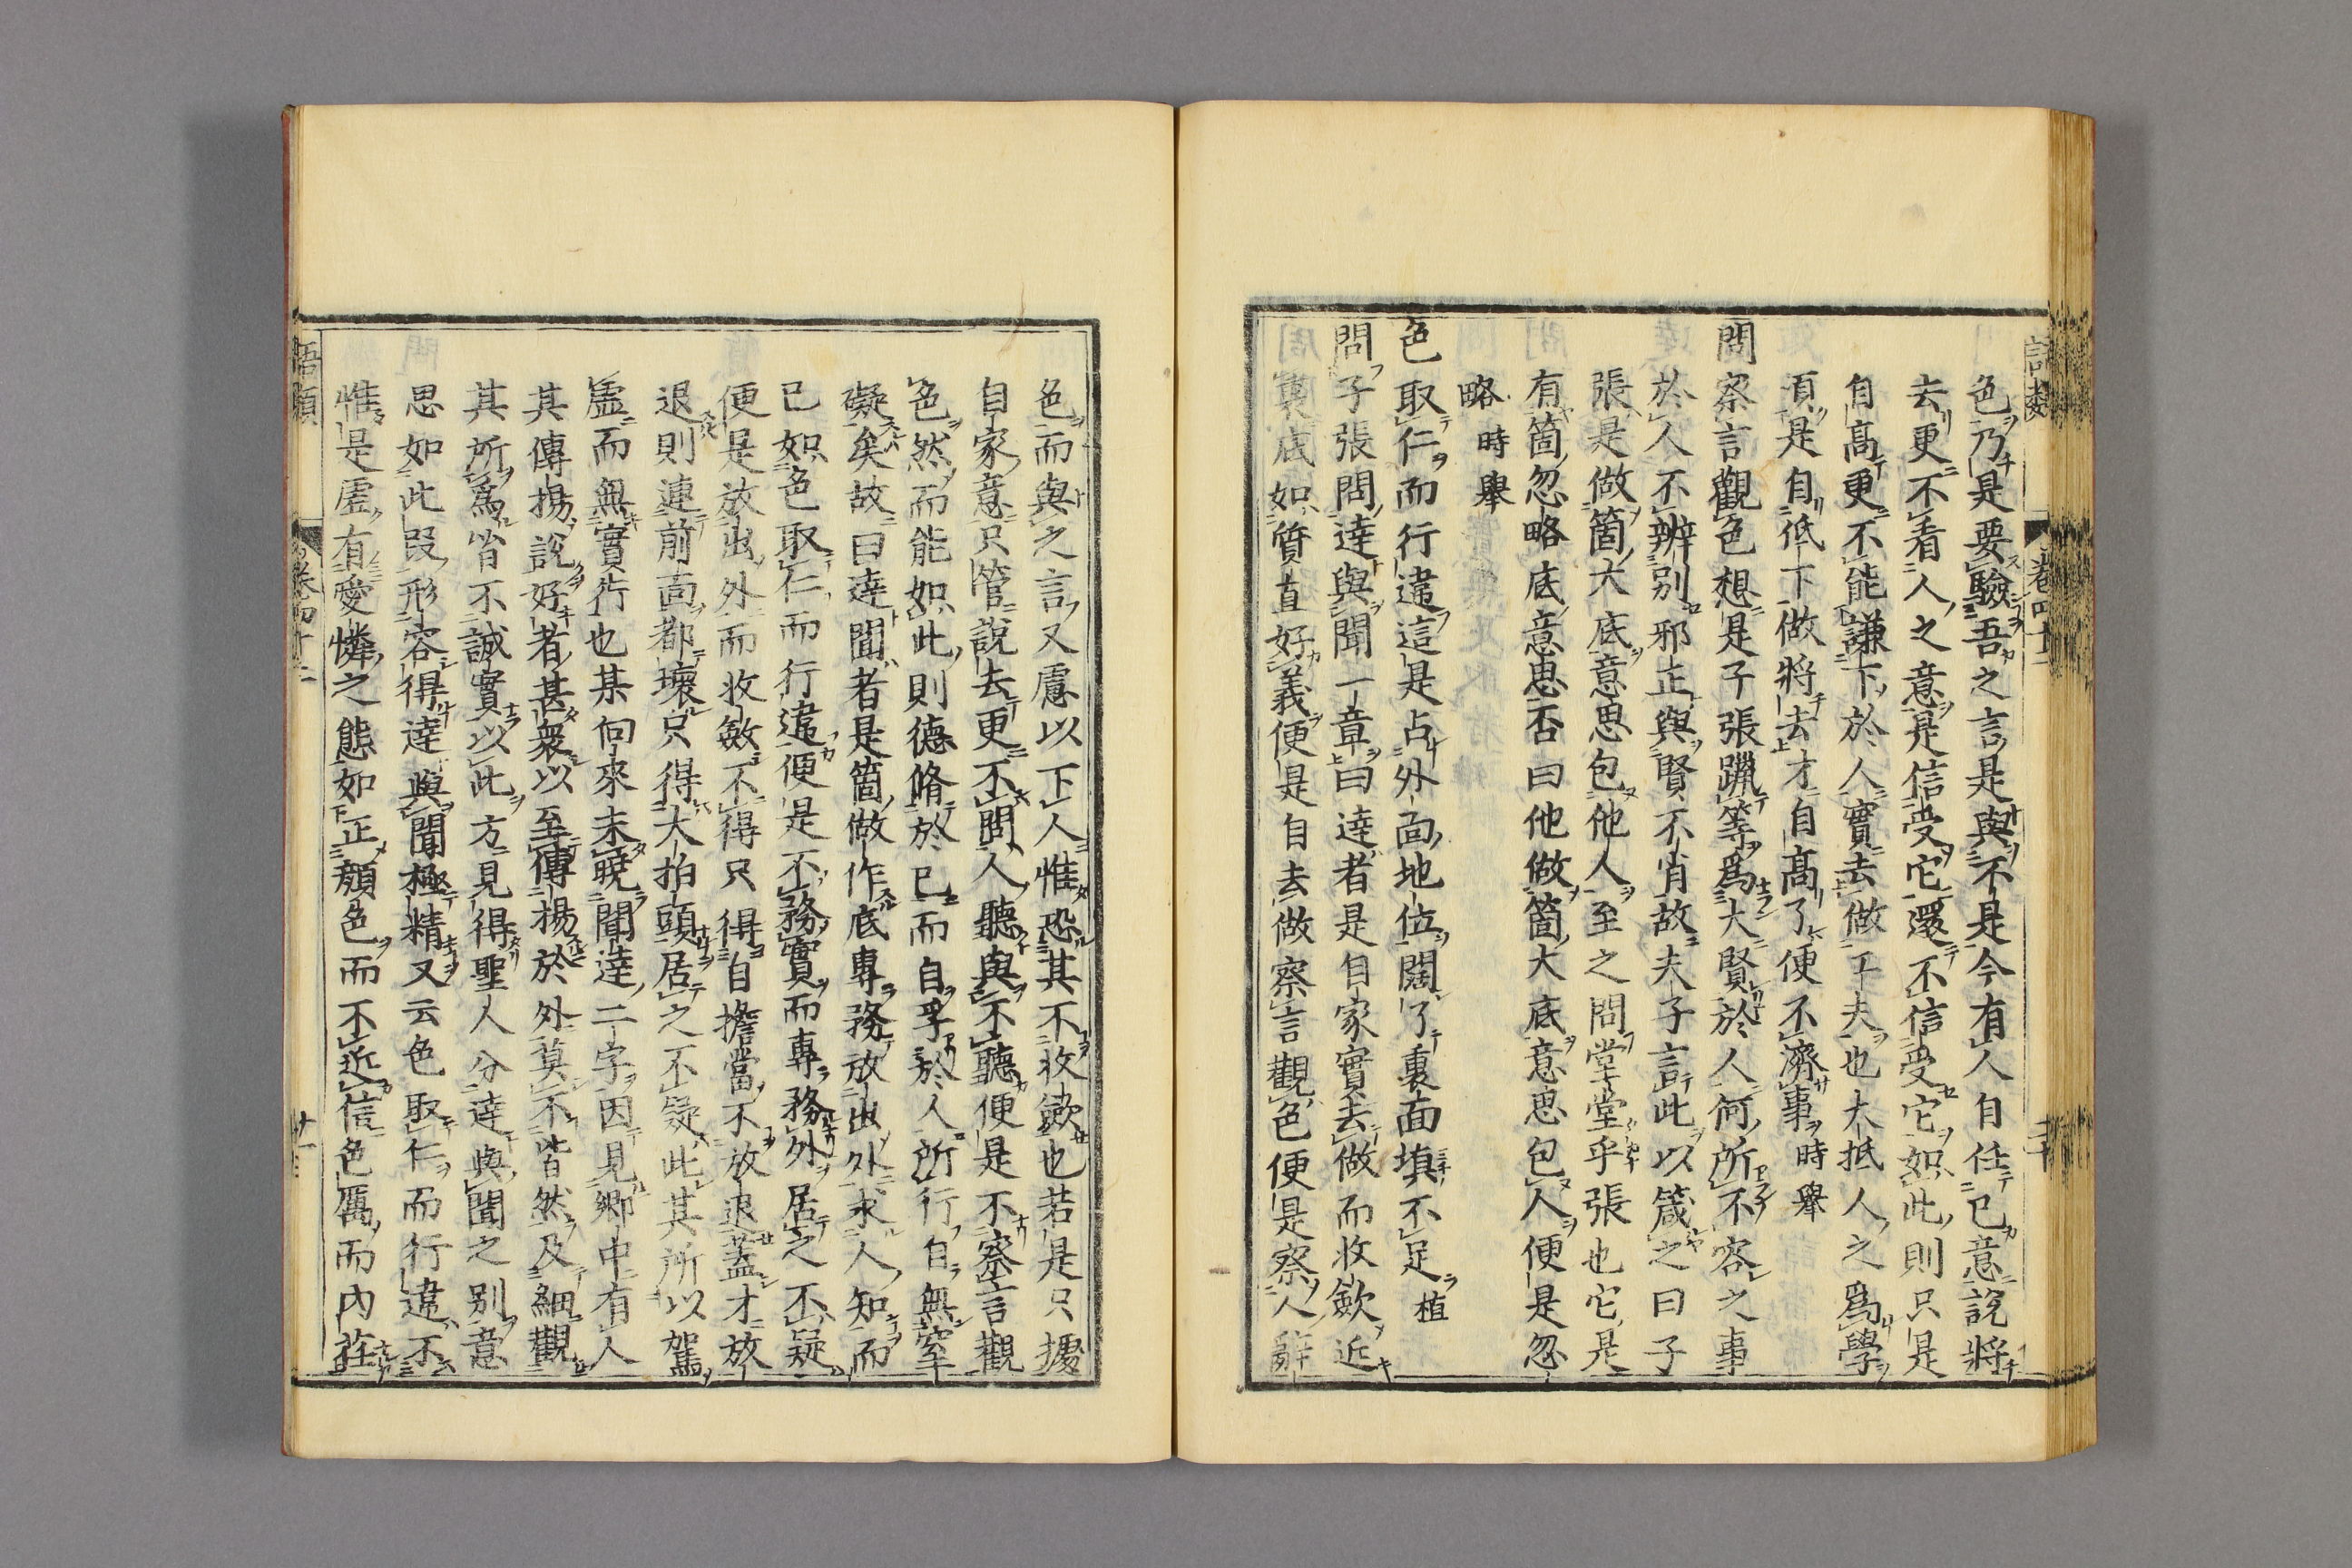 色乃是要驗吾之言是與不是今有人自任己意說將
去更不看人之意是信受它還不信受它如此則只是
自高更不能謙下於人實去做工夫也大抵人之為學
須是自低下做將去才自高了便不濟事時舉
問察言觀色想是子張躐等為大賢於人何所不容之事
於人不辨別邪正與賢不肖故夫子言此以箴之曰子
張是做箇大底意思包他人至之問堂堂乎張也它是
有箇忽略底意思否曰他做箇大底意思包人便是忽
略時舉
色取仁而行違這是占外面地位闊了裏面填不足植
問子張問達與聞一章曰達者是自家實去做而收斂近
裏底如質直好義便是自去做察言觀色便是察人辭
語類
卷四十二
二十
色而與之言又慮以下人惟恐其不收斂也若是只據
自家意只管說去更不問人聽與不聽便是不察言觀
色然而能如此則德脩於己而自孚於人所行自無窒
礙矣故曰達聞者是箇做作底專務放出外求人知而
已如色取仁而行違便是不務實而專務外居之不疑
便是放出外而收斂不得只得自擔當不放退蓋才放
退則連前面都壞只得大拍頭居之不疑此其所以駕
虛而無實行也某向來未曉聞達二字因見鄉中有人
其傳揚說好者甚衆以至傳揚於外莫不皆然及細觀
其所為皆不誠實以此方見得聖人分達與聞之別意
思如此段形容得達與聞極精又云色取仁而行違不
惟是虛有愛憐之態如正顏色而不近信色厲而內荏
語類
卷四十二
廿一